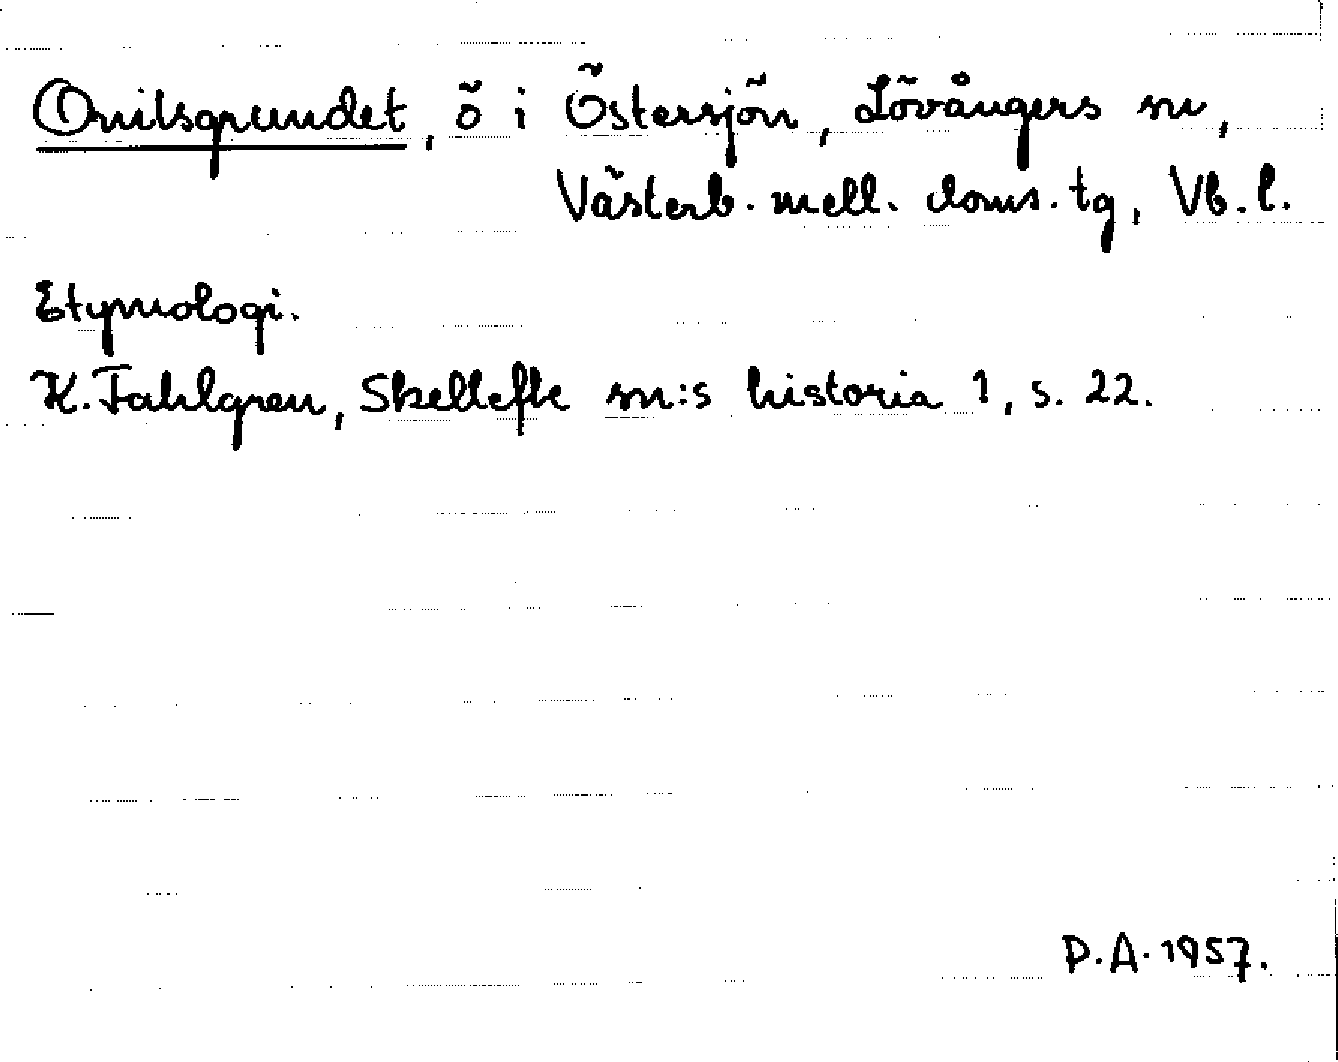 Onilsgrundet, ö i Östersjön, Lövångers sn,
Västerb. mell. doms. tg, Vb. l.
Etymologi.
K. Fahlgren, Skellefte sn:s historia 1, s. 22.
P.A. 1957.